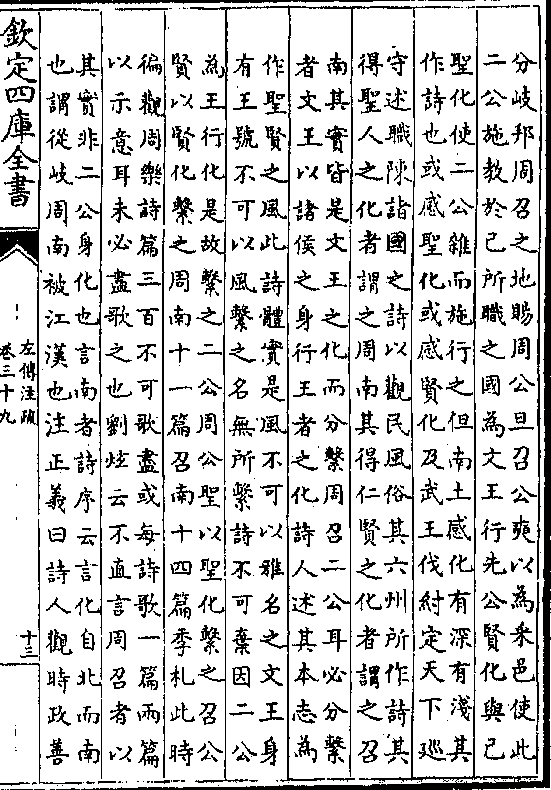 分岐邦周召之地賜周公旦召公奭以為采邑使此
二公施教於己所職之國為文王行先公賢化與己
聖化使二公雜而施行之但南土感化有深有淺其
作詩也或感聖化或感賢化及武王伐紂定天下廵
守述職陳諸國之詩以觀民風俗其六州所作詩其
得聖人之化者謂之周南其得仁賢之化者謂之召
南其實皆是文王之化而分繫周召二公耳必分繫
者文王以諸侯之身行王者之化詩人述其本志為
作聖賢之風此詩體實是風不可以雅名之文王身
有王號不可以風繫之名無所繫詩不可棄因二公
為王行化是故繫之二公周公聖以聖化繫之召公
賢以賢化繫之周南十一篇召南十四篇季札此時
徧觀周樂詩篇三百不可歌盡或每詩歌一篇兩篇
以示意耳未必盡歌之也劉炫云不直言周召者以
其實非二公身化也言南者詩序云言化自北而南
也謂從岐周南被江漢也注正義曰詩人觀時政善
欽定四庫全書
左傳注疏
卷三十九
十三